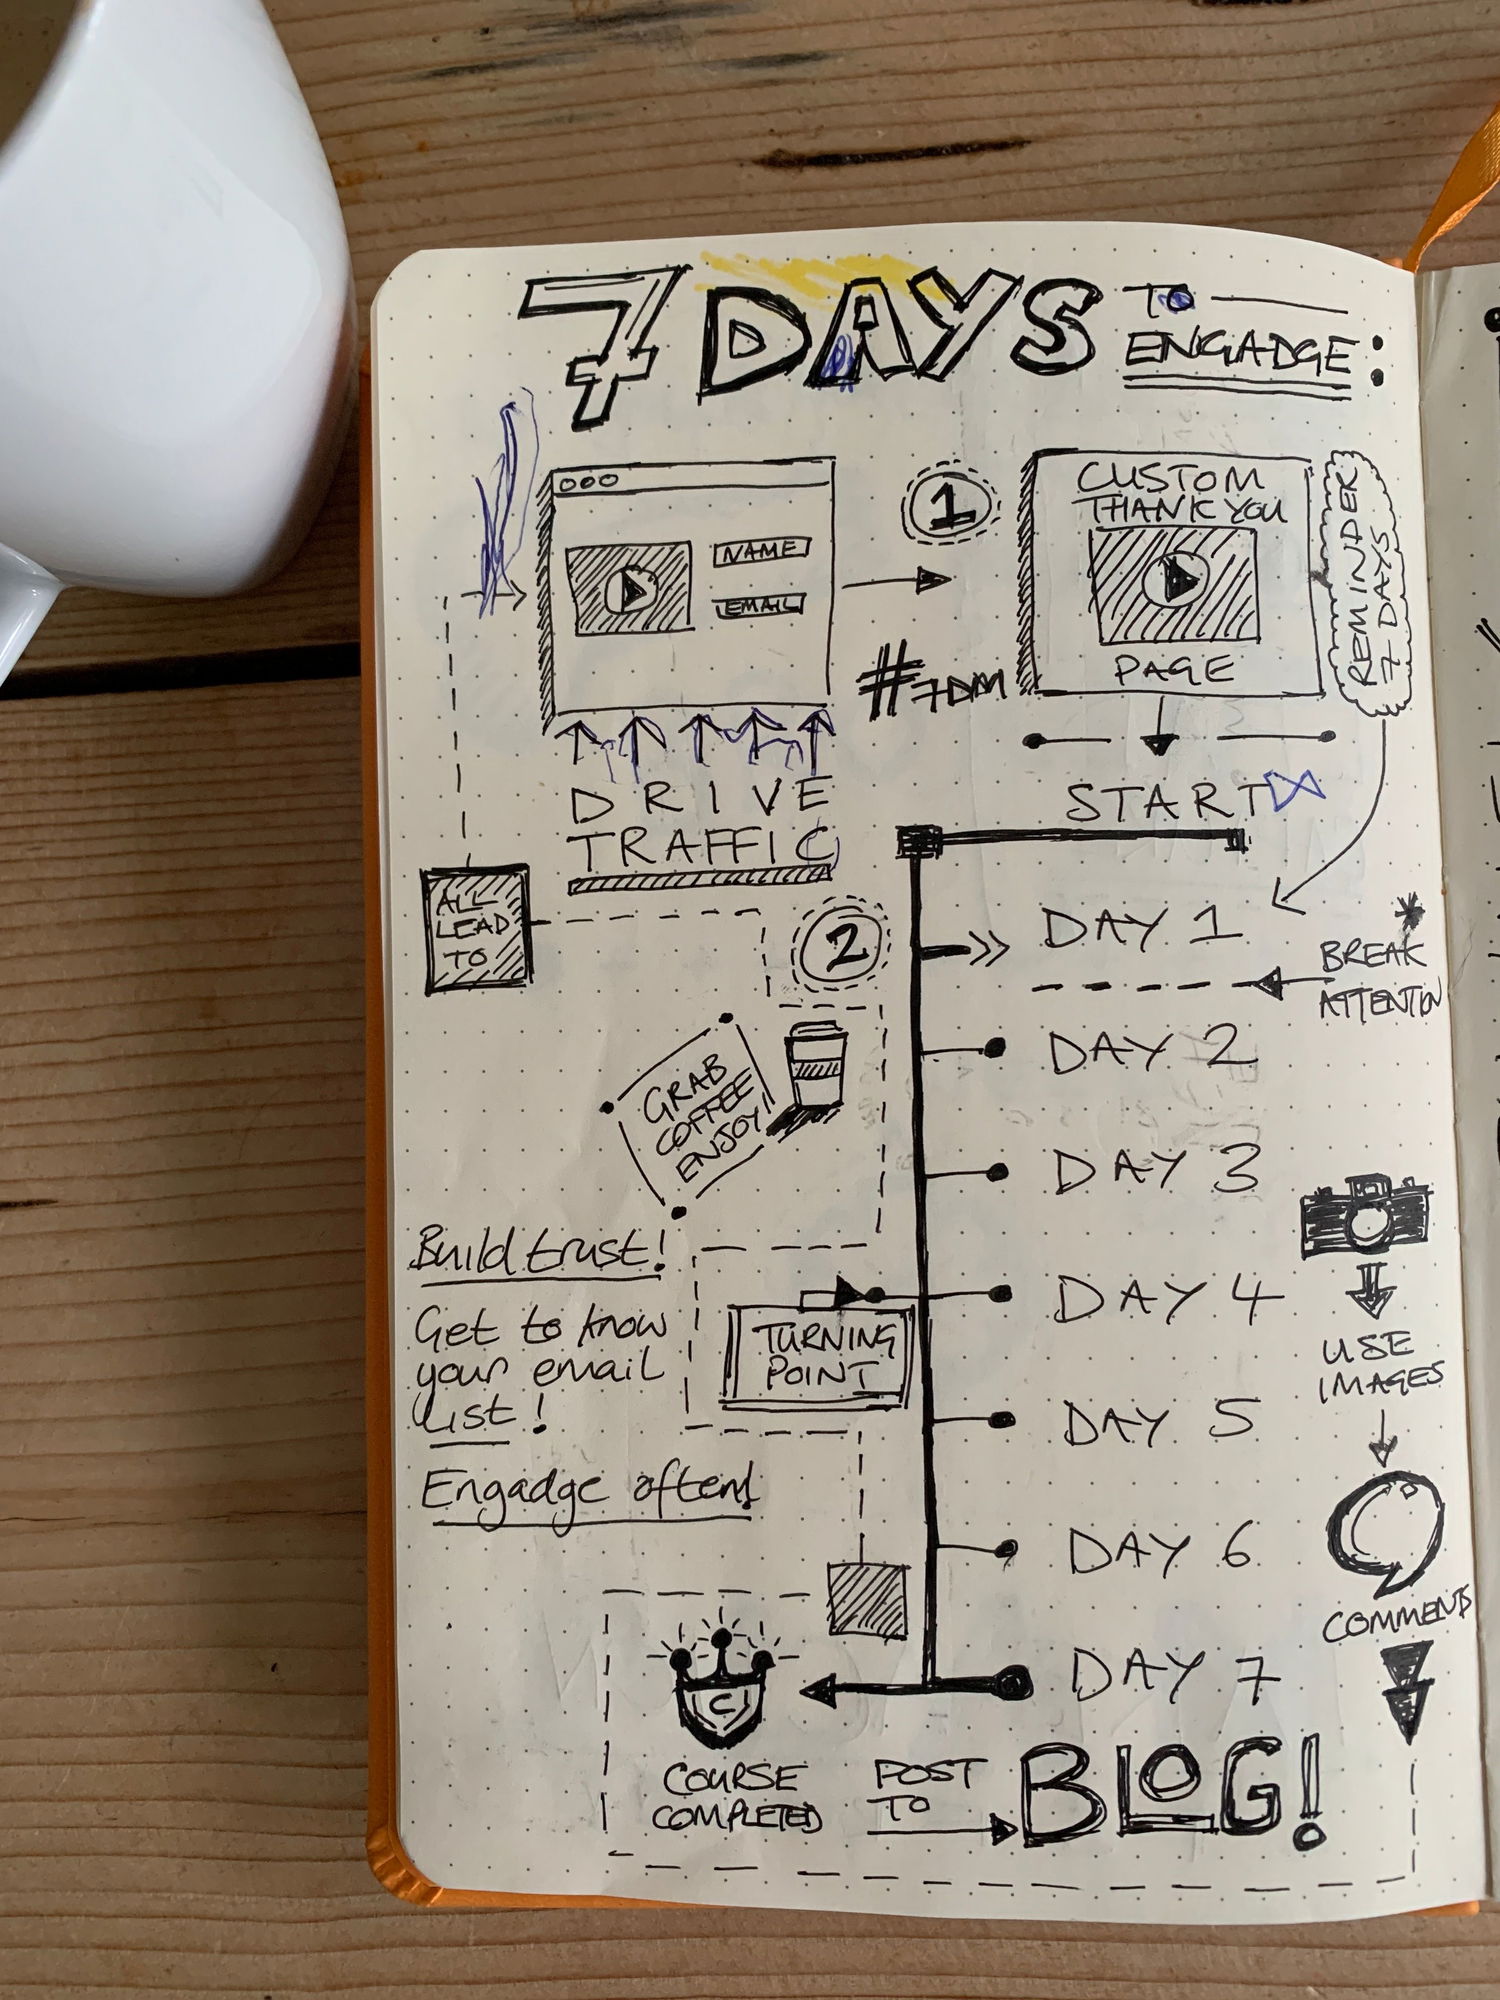 7 DAYS TO
ENGADGE:
NAME
EMAIL
1
CUSTOM
THANK YOU
PAGE
REMINDER
7 DAYS
#7DM
DRIVE
TRAFFIC
START
ALL
LEAD
TO
2
DAY 1
* BREAK
ATTENTION
DAY 2
GRAB
COFFEE
ENJOY!
DAY 3
Build trust!
Get to know
your email
list!
DAY 4
TURNING
POINT
USE
IMAGES
DAY 5
Engadge often!
DAY 6
COMMENTS
DAY 7
C
COURSE
COMPLETED
POST
TO
BLOG!